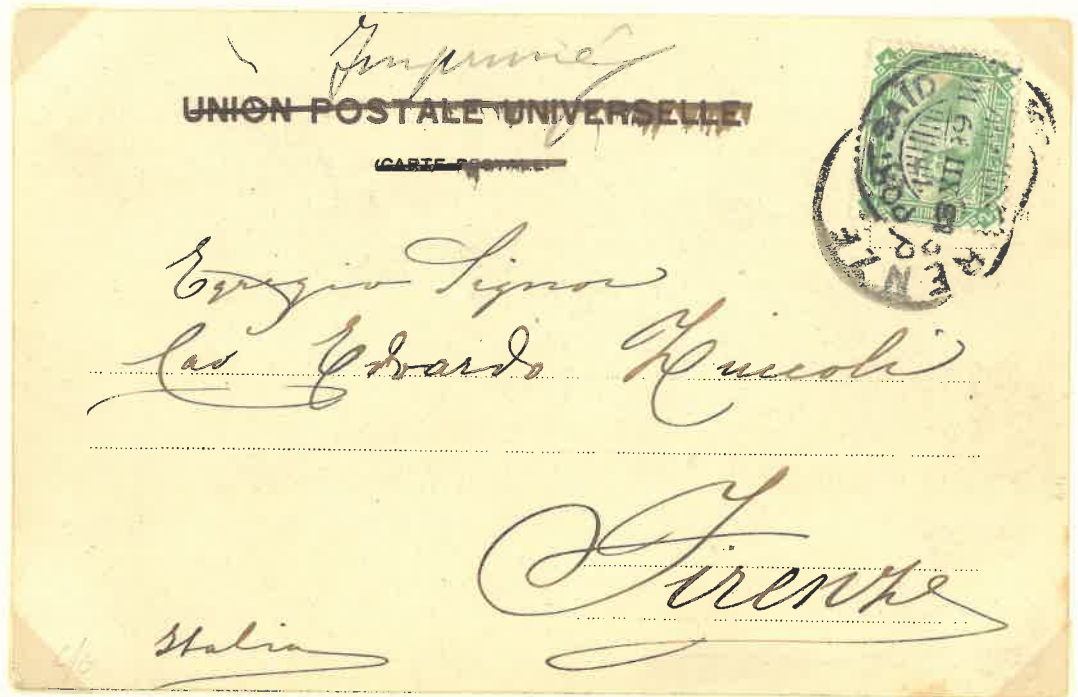 Imprimé
UNION POSTALE UNIVERSELLE
CARTE POSTALE
PORT-SAID
XII 99
Egregio Signor
Cav Edoardo Zuccoli
Firenze
Italia